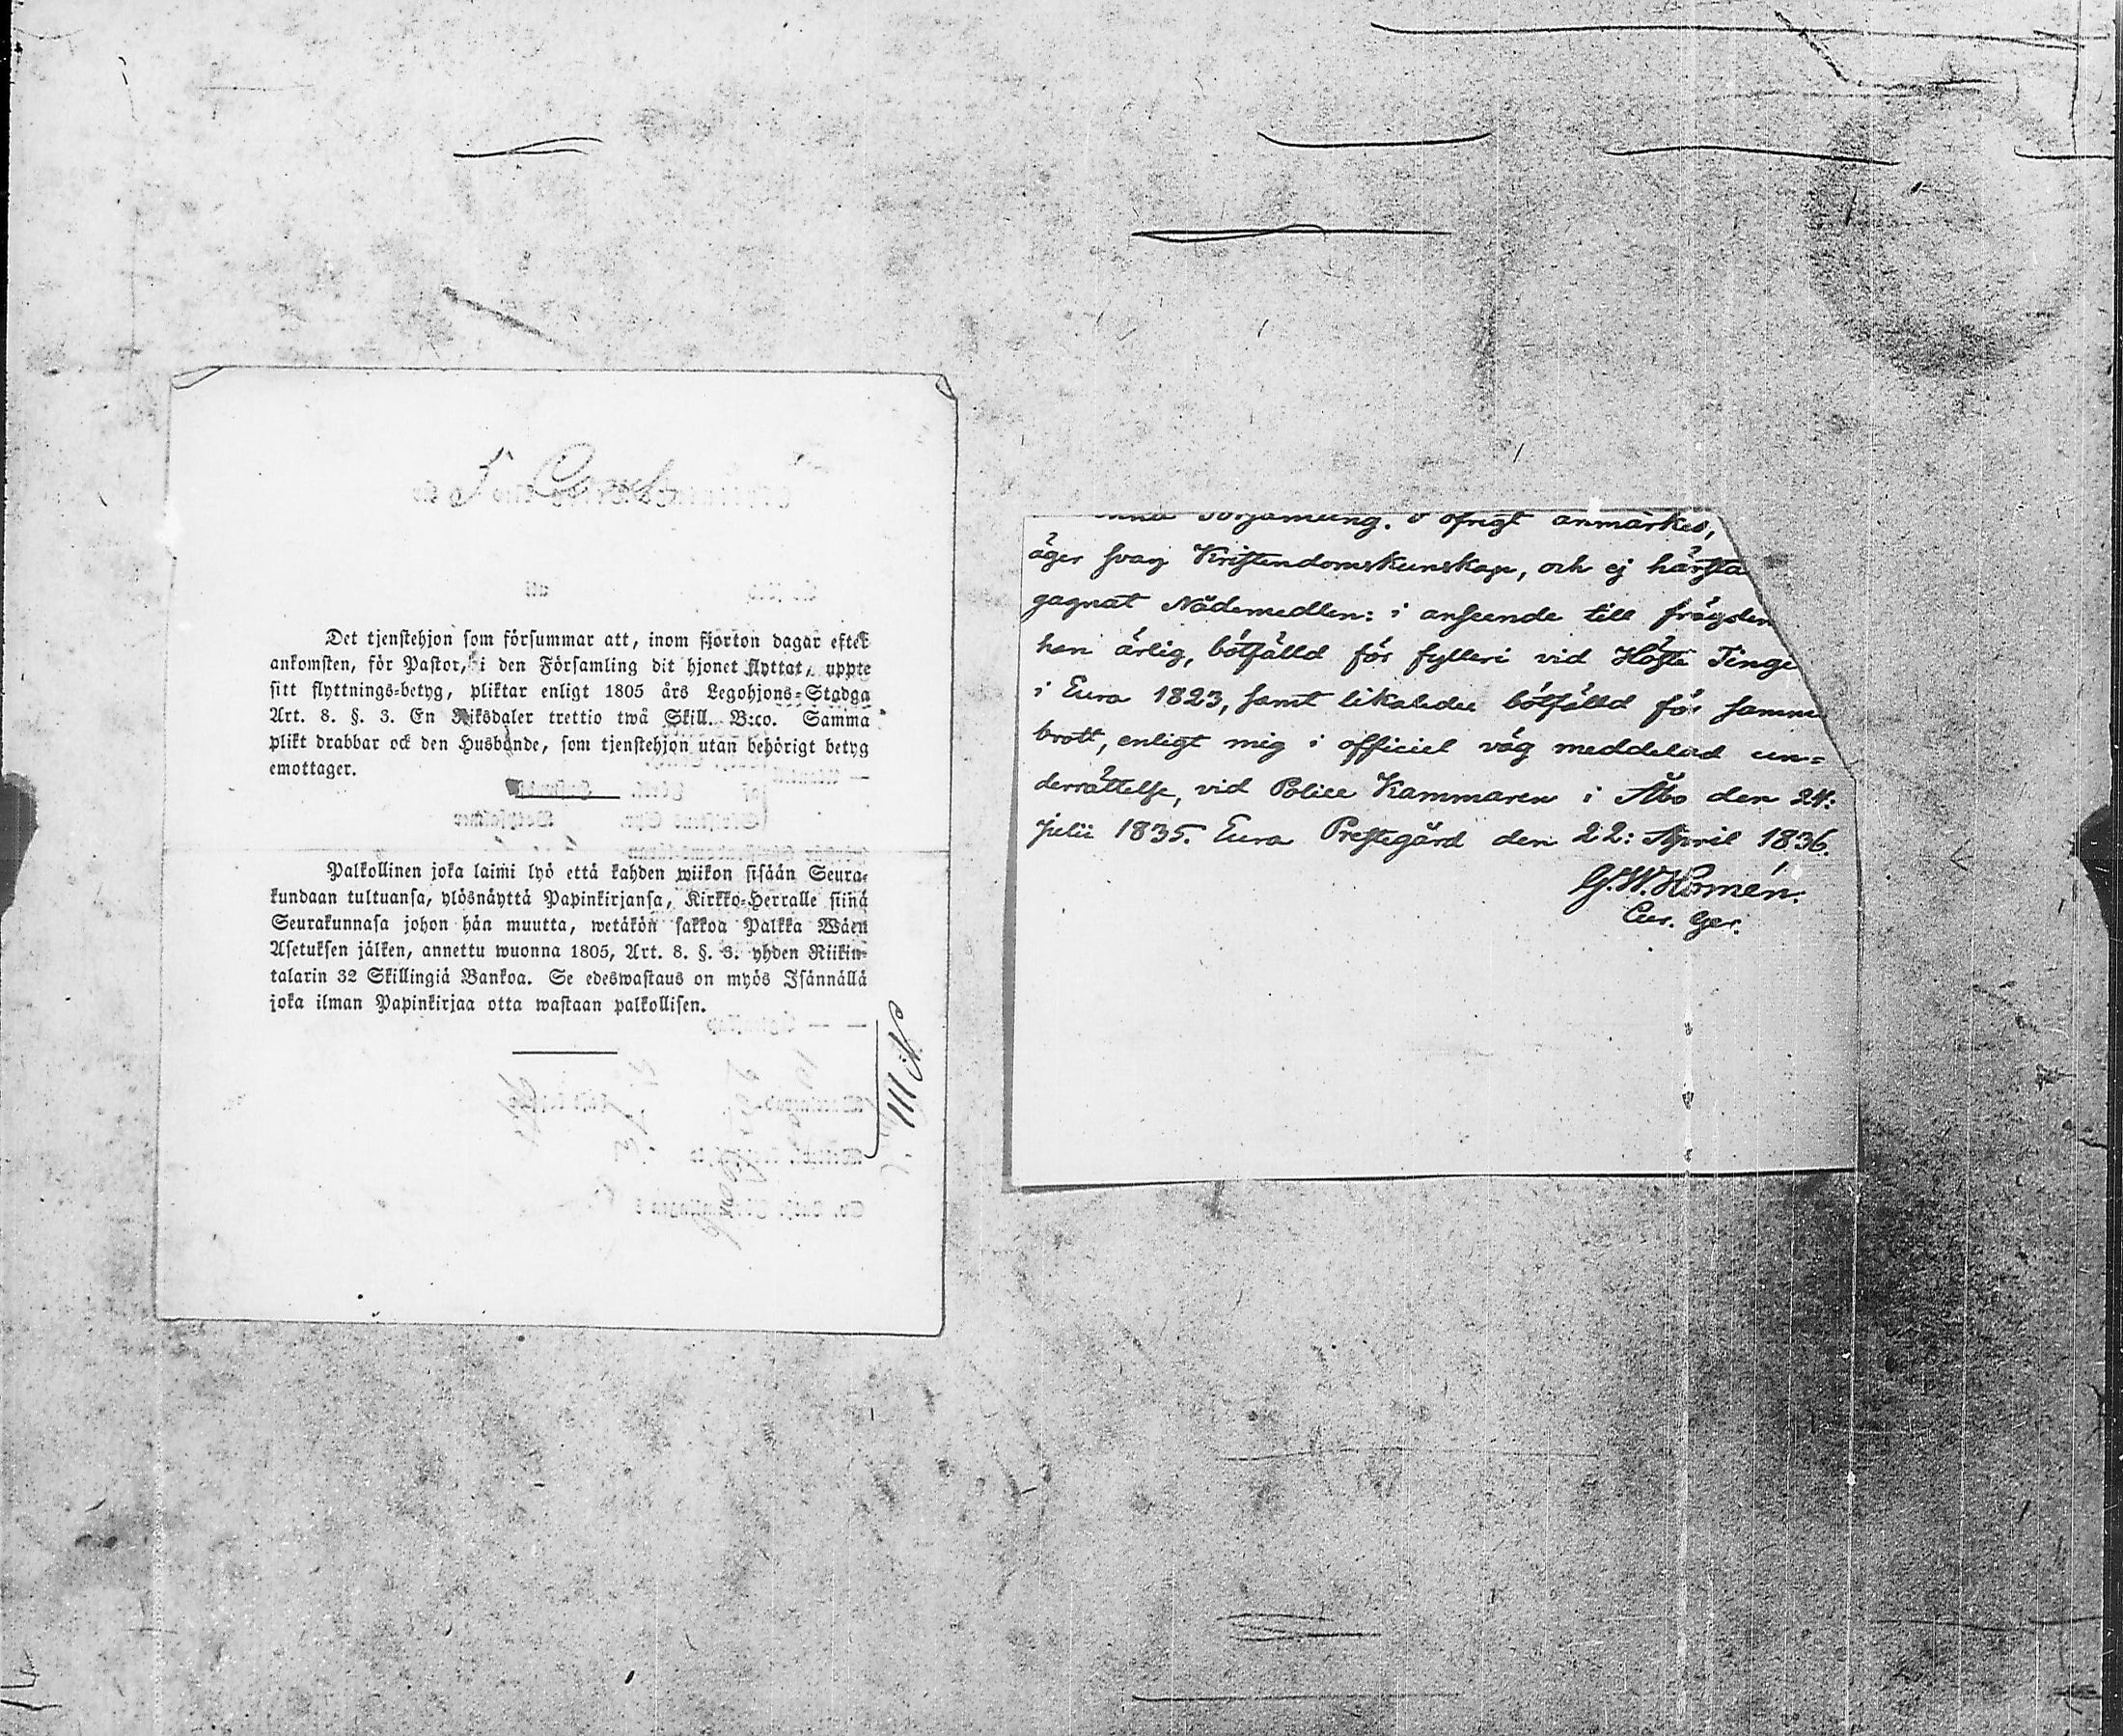 Det tjenstehjon som försummar att, inom fjorton dagar efter
ankomsten, för Pastor, i den Församling dit hjonet flyttat, uppte
sitt flyttnings-betyg, pliktar enligt 1805 års Legohjons-Stadga
Art. 8. §. 3. En Riksdaler trettio twå Skill. B:co. Samma
plikt drabbar ock den Husbonde, som tjenstehjon utan behörigt betyg
emottager.
Palkollinen joka laimi lyö että kahden wiikon sisään Seura-
kundaan tultuansa, ylösnäyttä Papinkirjansa, Kirkko-Herralle siinä
Seurakunnasa johon hän muutta, wetäkön sakkoa Palkka Wäen
Asetuksen jälken, annettu wuonna 1805, Art. 8. §. 3. yhden Riikin-
talarin 32 Skillingiä Bankoa. Se edeswastaus on myös Isännällä
joka ilman Papinkirjaa otta wastaan palkollisen.
Församling. I öfrigt anmärkes,
äger svag Kristendomskunskap, och ej
gagnat Nådemedlen: i anseende till frägden
han ärlig, bötfälld för fylleri vid Höste Tinge
i Eura 1823, samt likaledes bötfälld för samma
brott, enligt mig i officiel väg meddelad un=
derrättelse, vid Police Kammaren i Åbo den 24:
julii 1835. Eura Prestegård den 22: April 1836.
G. W. Homén.